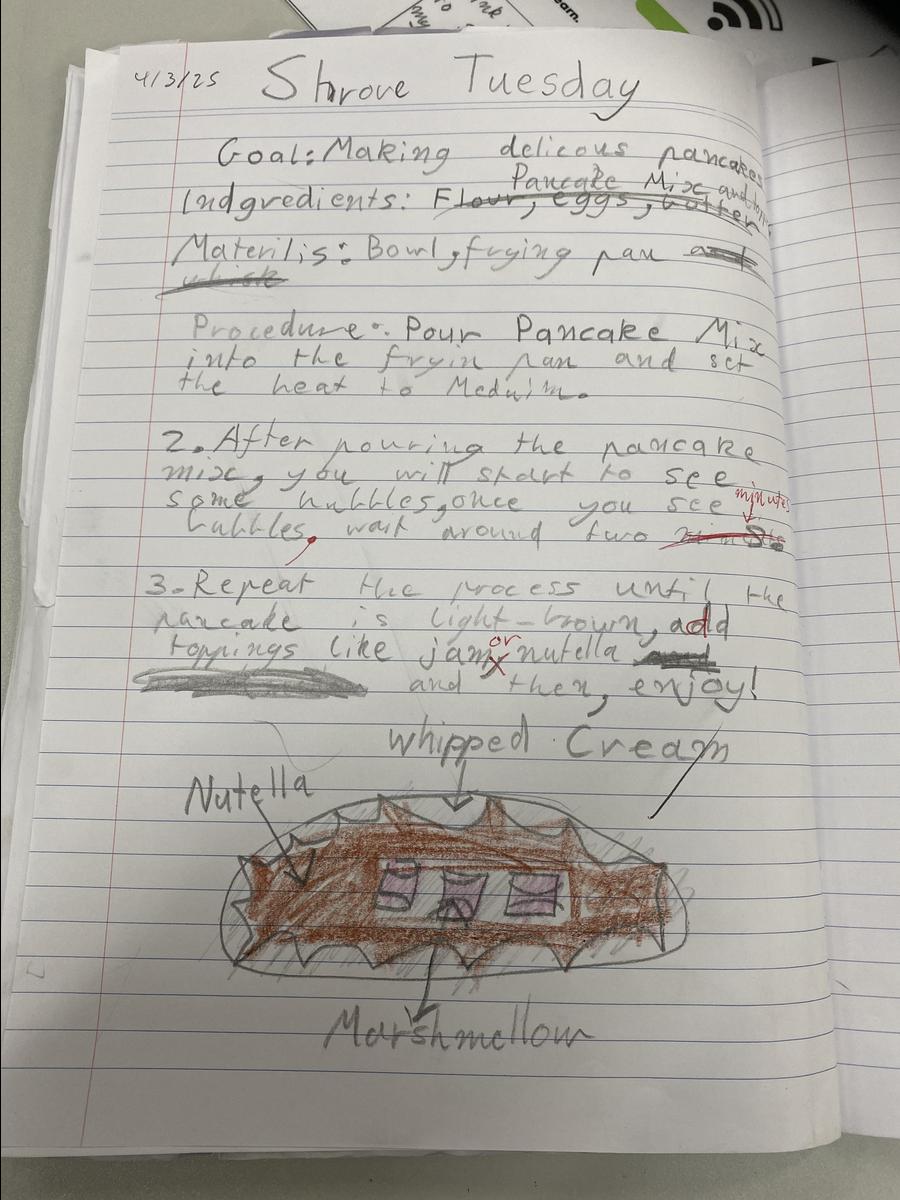 4/3/25 Shrove Tuesday
Goal: Making delicous pancakes
Pancake Mix and
Indgredients: Flour, eggs, butter
Materilis: Bowl, frying pan and
whisk
Procedure: Pour Pancake Mix
into the fryin pan and set
the heat to Meduim.
2. After pouring the pancake
mix, you will start to see
some bubbles, once you see minutes
bubbles, wait around two
3. Repeat the process until the
pancake is light-brown, add
toppings like jam or nutella
and then, enjoy!
Whipped Cream
Nutella
Marshmellow